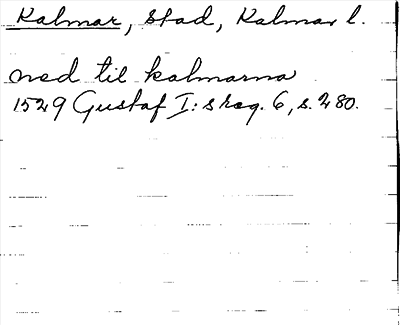 Kalmar, stad, Kalmar l.
ned til kalmarna
1529 Gustaf I:s reg. 6, s. 280.